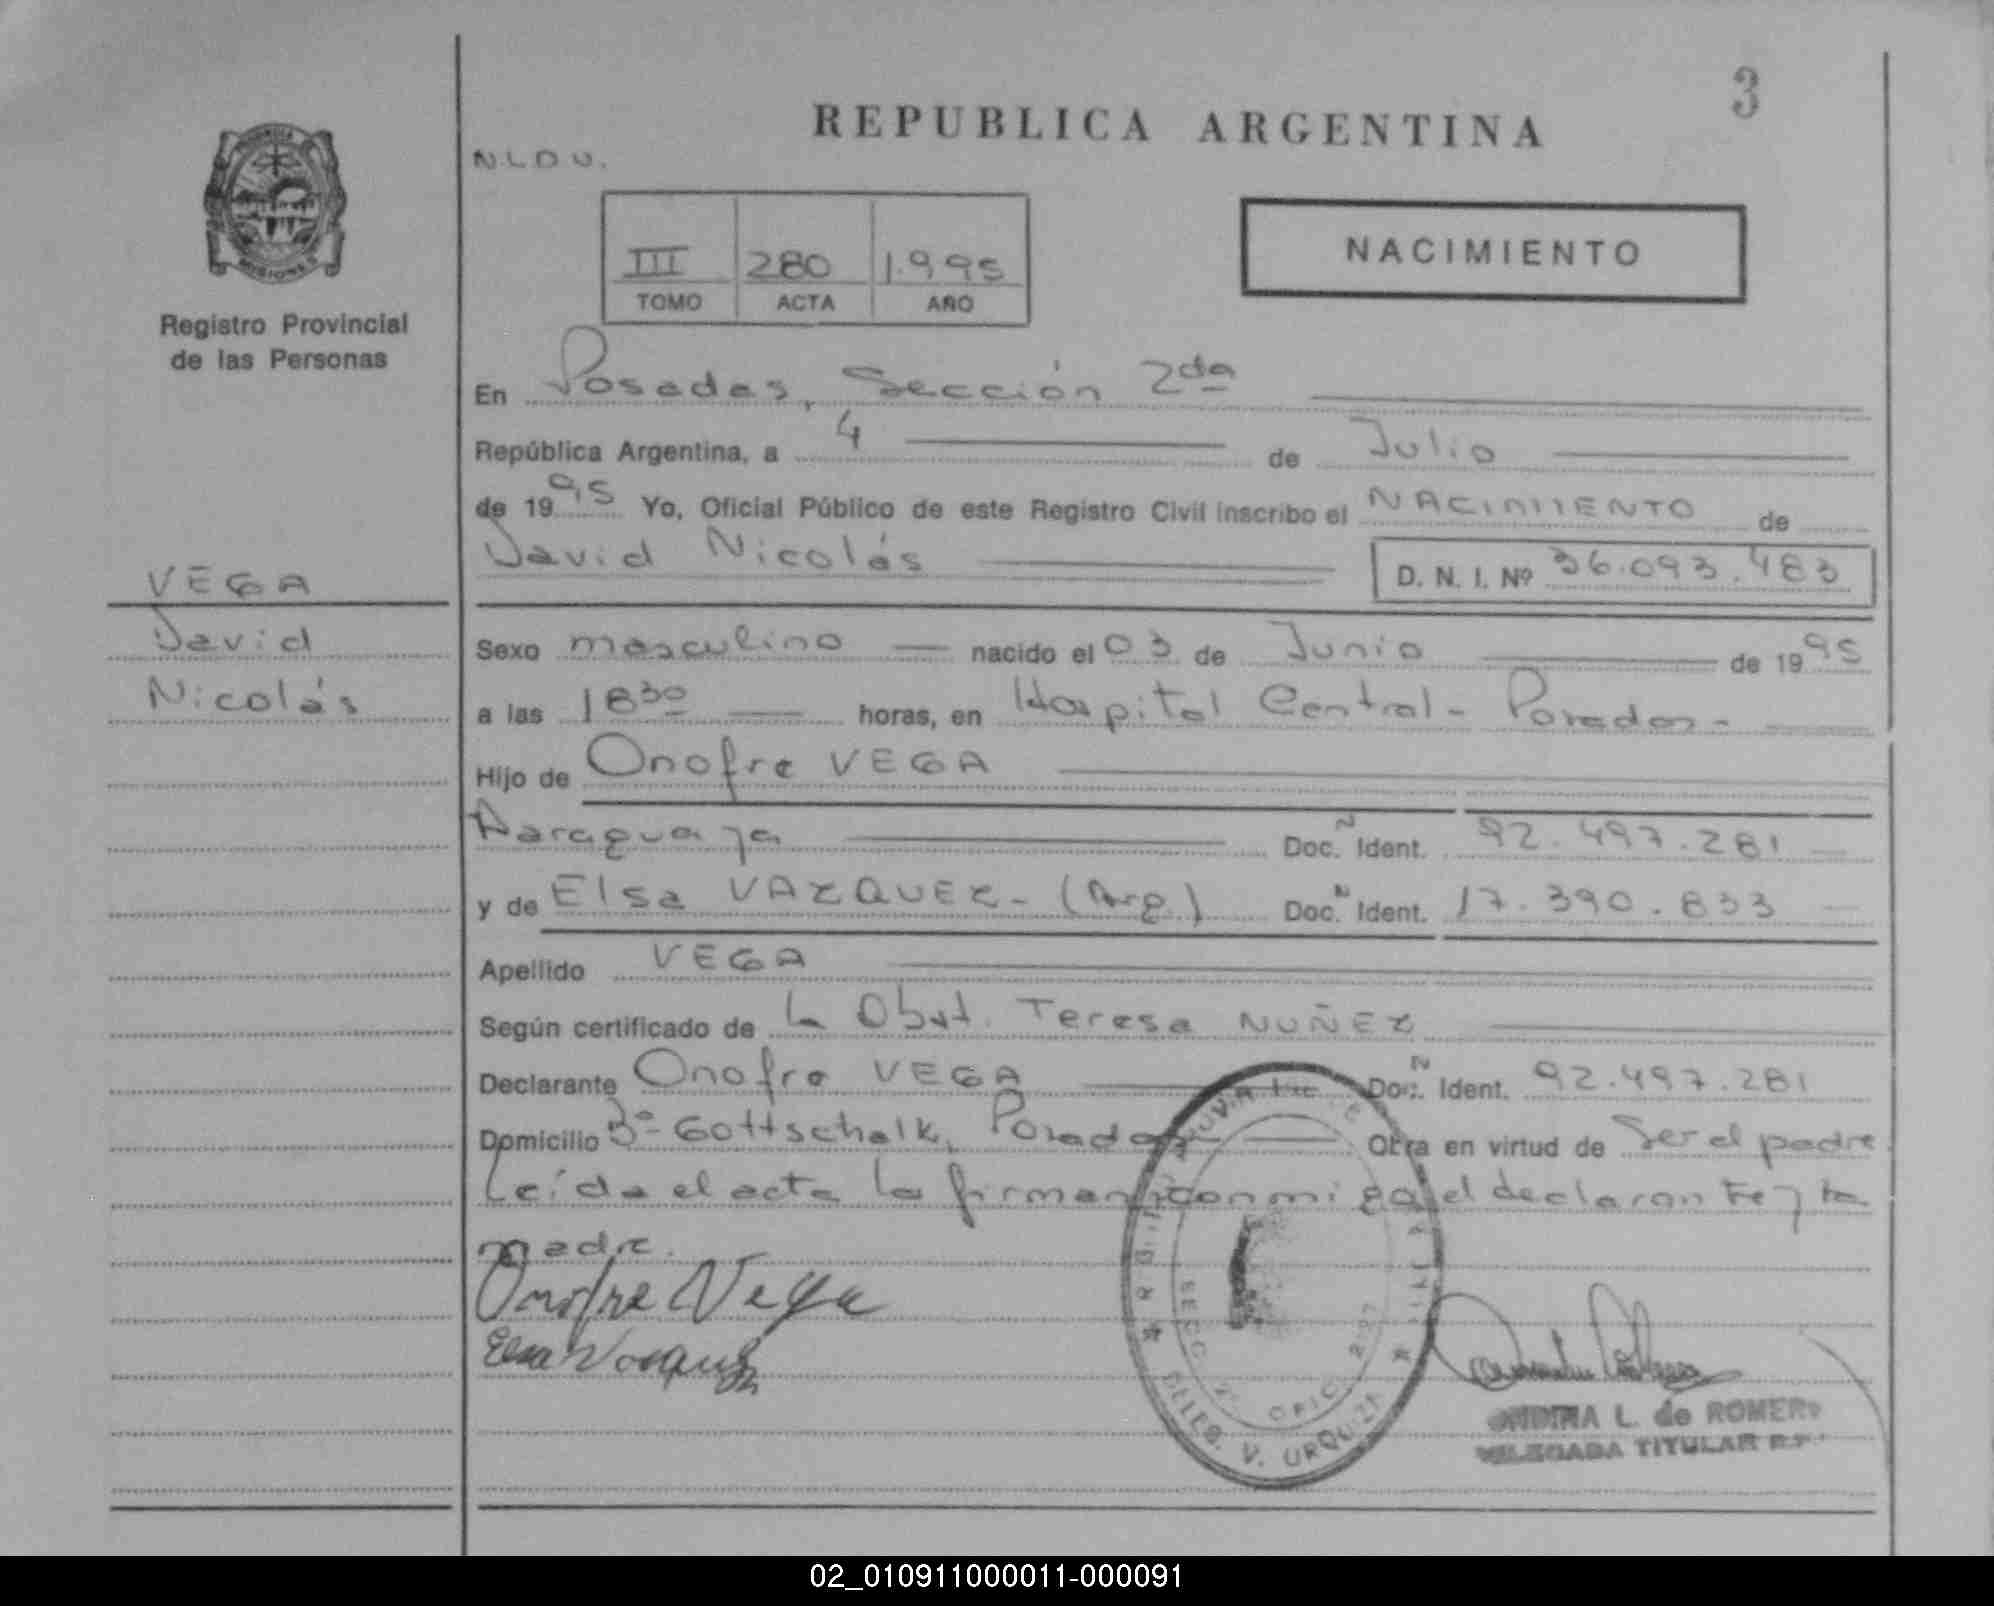 REPUBLICA ARGENTINA
3
N.L.D.U.
MISIONES
Registro Provincial
de las Personas
III 280 1.995
TOMO ACTA AÑO
NACIMIENTO
En Posadas, Sección 2da
República Argentina, a 4 de Julio
de 1995 Yo, Oficial Público de este Registro Civil inscribo el NACIMIENTO de
David Nicolás D. N. I. Nº 36.093.483
VEGA
David
Nicolás
Sexo masculino nacido el 03 de Junio de 1995
a las 18 30 horas, en Hospital Central - Posadas -
Hijo de Onofre VEGA
Paraguaya Doc. N Ident. 92.497.281
y de Elsa VAZQUEZ - (Arg.) Doc. N Ident. 17.390.833
Apellido VEGA
Según certificado de la Obst. Teresa NUÑEZ
Declarante Onofre VEGA Doc. N Ident. 92.497.281
Domicilio Bº Gottschalk, Posadas Obra en virtud de Ser el padre
Leída el acta la firman conmigo el declarante y la
madre.
Onofre Vega
Elsa Vazquez
SECC. 2º OFIC.
DELEG. V. URQUIZA
L. de ROMERO
DELEGADA TITULAR R.P.
02_010911000011-000091